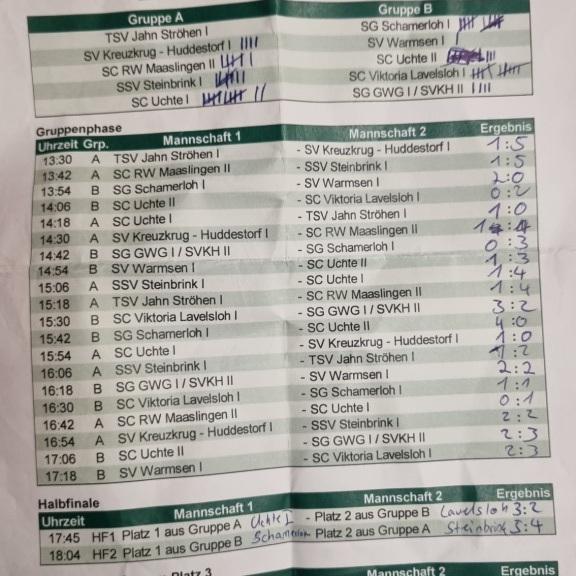 Gruppe A Gruppe B
TSV Jahn Ströhen I SG Schamerloh I
SV Kreuzkrug - Huddestorf I SV Warmsen I
SC RW Maaslingen II SC Uchte II
SSV Steinbrink I SC Viktoria Lavelsloh I
SC Uchte I SG GWG I / SVKH II
Gruppenphase
Uhrzeit Grp. Mannschaft 1 Mannschaft 2 Ergebnis
13:30 A TSV Jahn Ströhen I - SV Kreuzkrug - Huddestorf I 1:5
13:42 A SC RW Maaslingen II - SSV Steinbrink I 1:5
13:54 B SG Schamerloh I - SV Warmsen I 2:0
14:06 B SC Uchte II - SC Viktoria Lavelsloh I 0:2
14:18 A SC Uchte I - TSV Jahn Ströhen I 1:0
14:30 A SV Kreuzkrug - Huddestorf I - SC RW Maaslingen II
14:42 B SG GWG I / SVKH II - SG Schamerloh I 0:3
14:54 B SV Warmsen I - SC Uchte II 1:3
15:06 A SSV Steinbrink I - SC Uchte I 1:4
15:18 A TSV Jahn Ströhen I - SC RW Maaslingen II 1:4
15:30 B SC Viktoria Lavelsloh I - SG GWG I / SVKH II 3:2
15:42 B SG Schamerloh I - SC Uchte II 4:0
15:54 A SC Uchte I - SV Kreuzkrug - Huddestorf I 1:0
16:06 A SSV Steinbrink I - TSV Jahn Ströhen I 1:2
16:18 B SG GWG I / SVKH II - SV Warmsen I 2:2
16:30 B SC Viktoria Lavelsloh I - SG Schamerloh I 1:1
16:42 A SC RW Maaslingen II - SC Uchte I 0:1
16:54 A SV Kreuzkrug - Huddestorf I - SSV Steinbrink I 2:2
17:06 B SC Uchte II - SG GWG I / SVKH II 2:3
17:18 B SV Warmsen I - SC Viktoria Lavelsloh I 2:3
Halbfinale
Uhrzeit Mannschaft 1 Mannschaft 2 Ergebnis
17:45 HF1 Platz 1 aus Gruppe A Uchte I - Platz 2 aus Gruppe B Lavelsloh 3:2
18:04 HF2 Platz 1 aus Gruppe B Schamerloh - Platz 2 aus Gruppe A Steinbrink 3:4
Platz 3 Mannschaft 2 Ergebnis